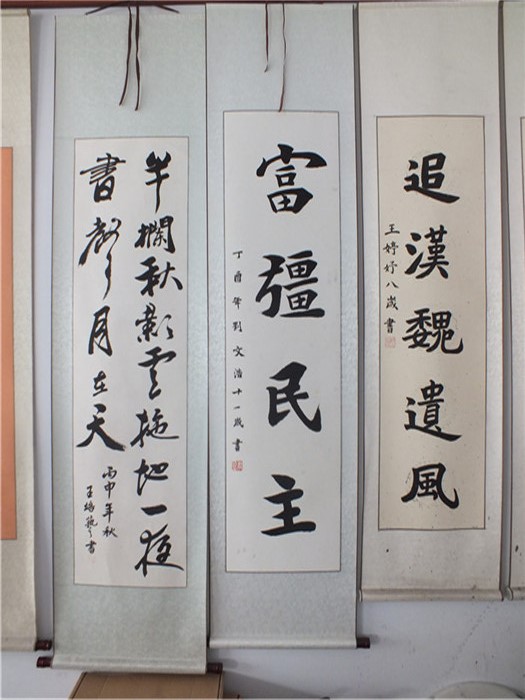 追漢魏遺風
王婷妤八歲書
富彊民主
丁酉年刘文浩十一歲書
半欄秋影雲拖地一夜
書聲月在天
丙申年秋
王書